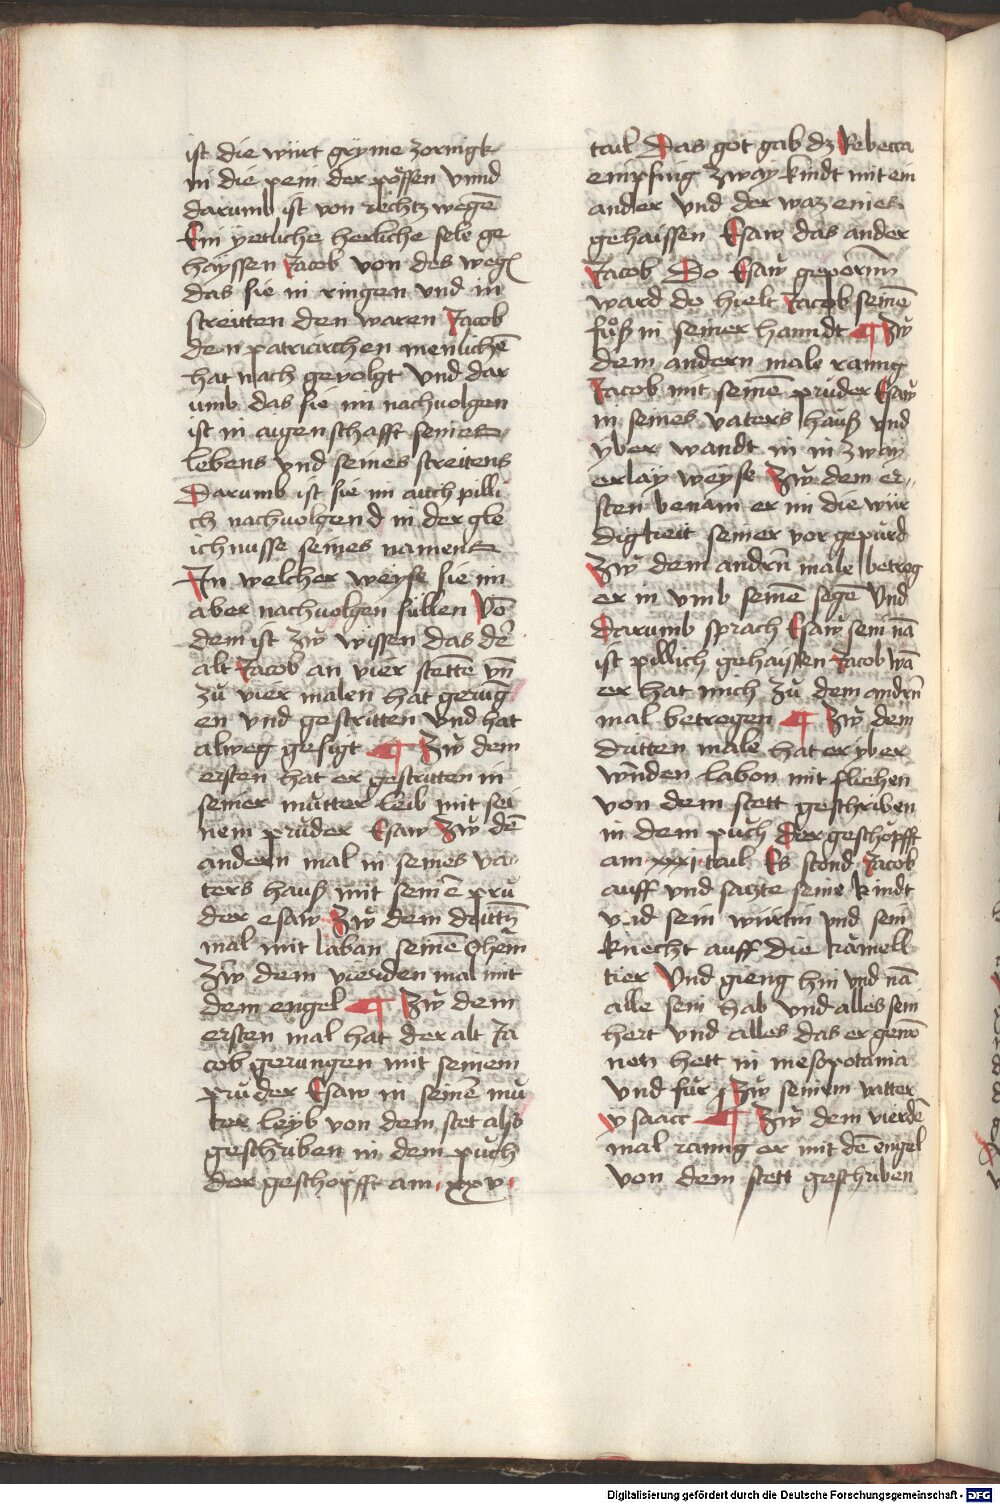 ist die würt gryme zornigk
in die pein der pössen vnnd
darumb ist von rechtz wegē
Ein yetliche herliche sele ge
hayssen Jacob von des weg
das sie in ringen vnd in
streitten den waren Jacob
den patriarchen menlichē
hat nach gevolgt Vnd dar
umb das sie im nachuolgen
ist in augenschafft seines
lebens vnd seines streitens
Darumb ist sie im auch pilli
ch nachuolgend in der gle
ichnusse seines namens
In welcher weyse sie im
aber nachuolgen süllen Vō
dem ist zw̆ wissen das dē
alt Jacob an vier stetten vn̄
zu vier malen hat gerūg
en vnd gestritten vnd hat
alweg gesigt ¶ Zw̆ dem
ersten hat er gestritten in
seiner mutter leib mit sei
nem pruder Esaw Zw̆ dē
andern mal in seines va
ters hauß mit seinē pru
der esaw Zw̆ dem drittn̄
mal mit laban seinē Ohem̄
Zw̆ dem vierden mal mit
dem engel ¶ Zw̆ dem
ersten mal hat der alt Ja
cob gerungen mit seinem
pruder Esaw in seinē mu
ter leyb von dem stet also
geschriben in dem puch
der geschopfft am xxv
tail Das got gab dz Rebecca
empfing zway kindt mit ein
ander vnd der waz eines
gehaissen Esaw das ander
Jacob Do Esaw geporn̄
ward do hielt Jacob seinē
fuß in seiner hanndt ¶ Zw̆
dem andern male ranng
Jacob mit seinē pruder Esaw
in seines vaters hauß vnd
yber wandt in in zway
erlay weyse Zw̆ dem er
sten benam er im die wir
digkeit seiner vorgepurd
Zw̆ dem andrn̄ male betrog
er in vmb seinē segē Vnd
Darumb sprach Esaw sein nā
ist pillich gehaissen Jacob wā
er hat mich zu dem andrn̄
mal betrogen ¶ Zw̆ dem
dritten male hat er yber
wn̄den labon mit fliehen
von dem stett geschriben
in dem puch der geschöpfft
am xxxi tail Es stond Jacob
auff vnd satzte seine kindt
vnd sein würtin vnd sein
knecht auff die kamell
tier Vnd gieng hin vnd nā
alle sein hab vnd alles sein
hert vnd alles das er genō
nen hett in mesopotania
vnd fur Zw̆ seinem vatter
ysaacc ¶ Zw̆ dem vierdē
mal ranng er mit dē engel
von dem stett geschriben
Digitalisierung gefördert durch die Deutsche Forschungsgemeinschaft - DFG